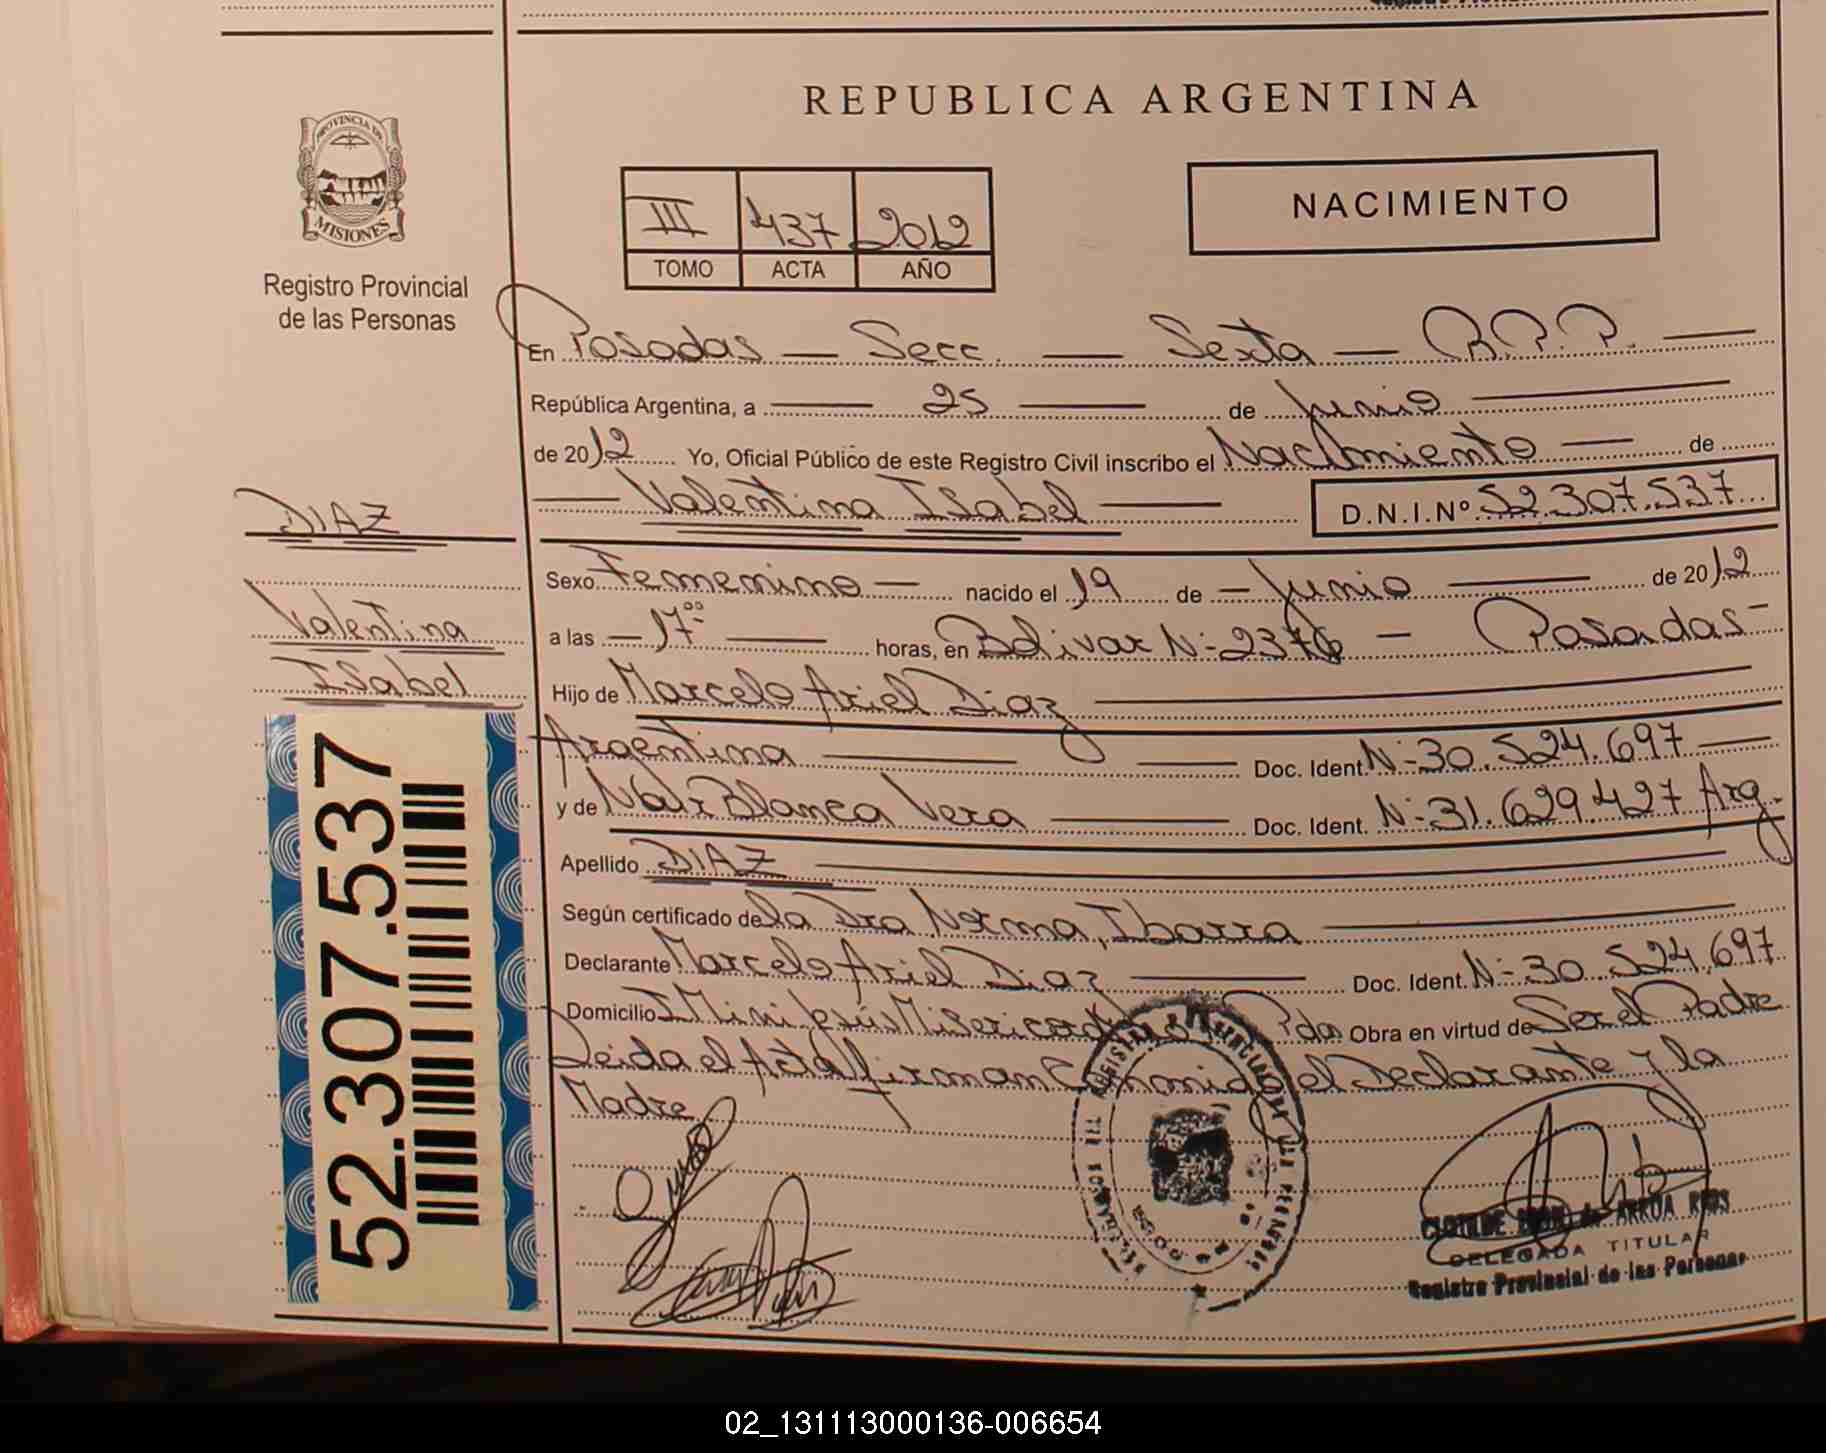 REPUBLICA ARGENTINA
PROVINCIA DE
MISIONES
Registro Provincial
de las Personas
III 437 2012
TOMO ACTA AÑO
NACIMIENTO
En Posadas — Secc. — Sexta — R.P.P. —
República Argentina, a — 25 — de Junio —
de 2012 Yo, Oficial Público de este Registro Civil inscribo el Nacimiento — de
— Valentina Isabel — D.N.I.Nº 52.307.537
DIAZ
Valentina
Isabel
52.307.537
Sexo Femenino — nacido el 19 de — Junio — de 2012
a las — 17ºº — horas, en Bolivar Nº 2376 — Posadas —
Hijo de Marcelo Ariel Diaz —
Argentina — Doc. Ident. Nº 30.524.697 —
y de Blanca Vera — Doc. Ident. Nº 31.629.427 Arg.
Apellido DIAZ —
Según certificado de la Dra Norma, Ibarra —
Declarante Marcelo Ariel Diaz — Doc. Ident. Nº 30.524.697
Domicilio Jesús Pdas. Obra en virtud de Ser el Padre
Leida el Acta firman Conmigo el Declarante y la
Madre
DELEGADA TITULAR
Registro Provincial de las Personas
02_131113000136-006654